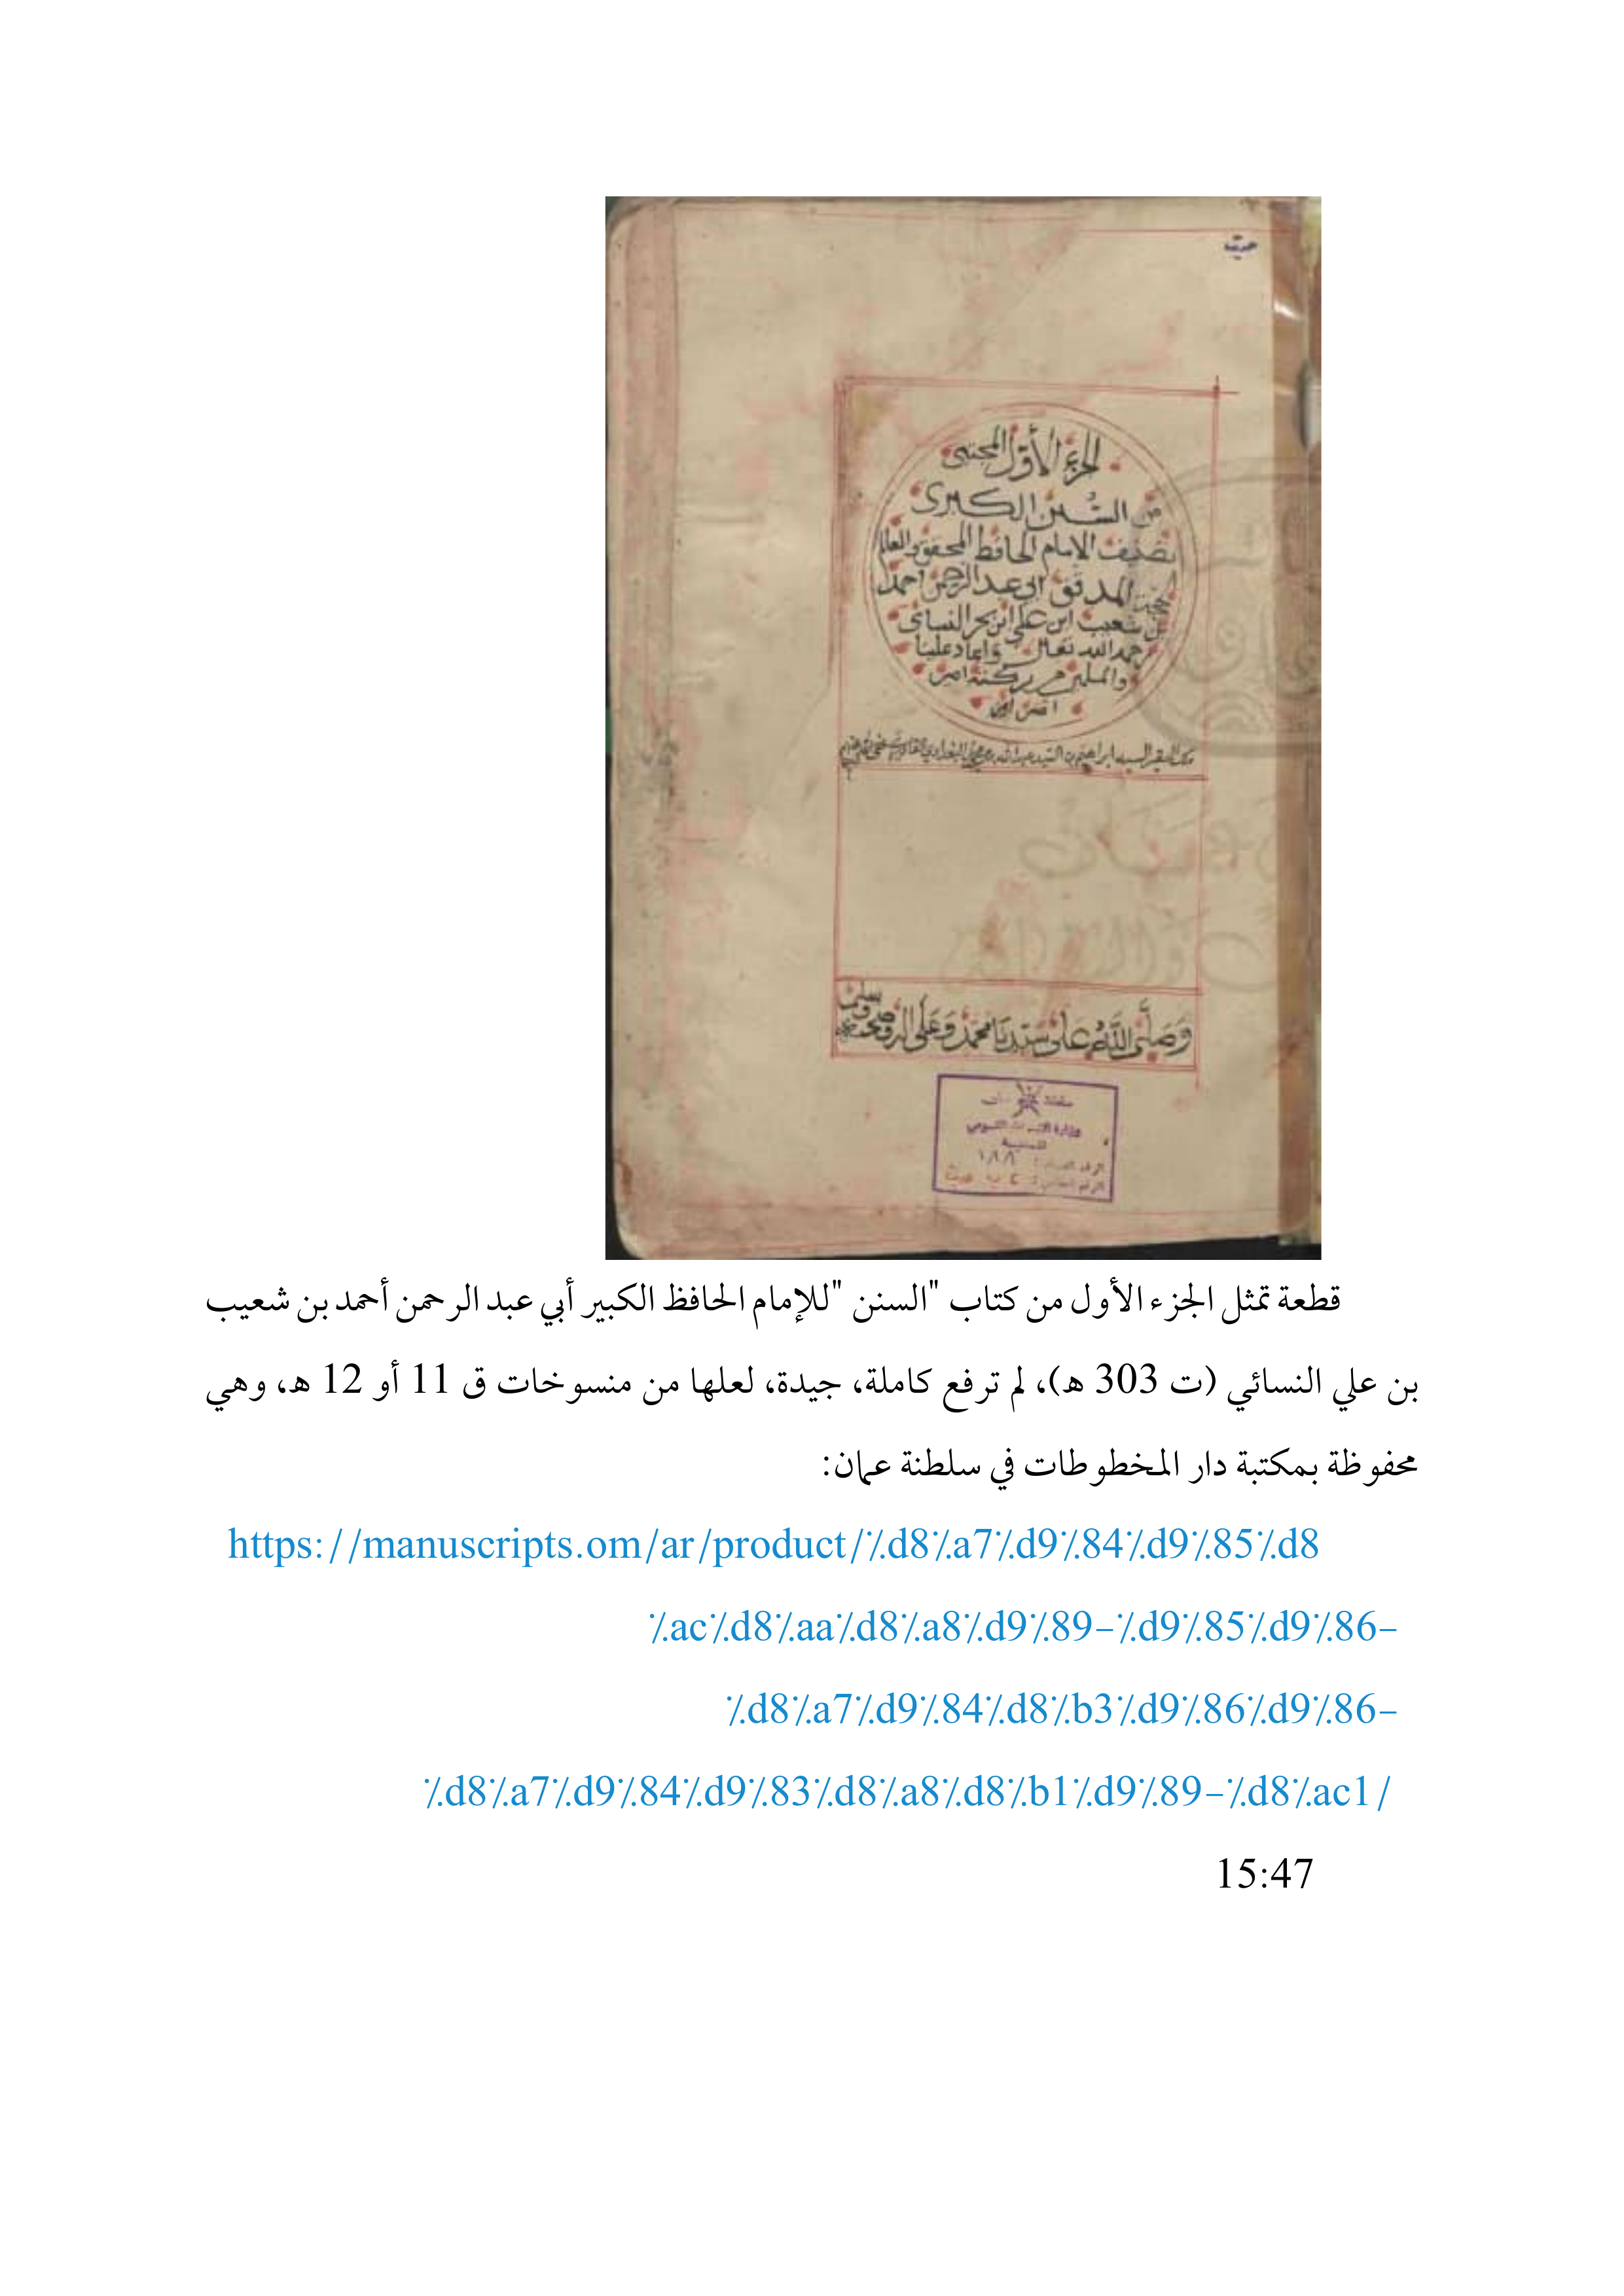 حديث
الجزء الأول المجتبى
من السنن الكبرى
تصنيف الإمام الحافظ المحقق والعالم
الحجة المدقق ابي عبد الرحمن احمد
بن شعيب ابن علي ابن بحر النسائي
رحمه الله تعالى واعاد علينا
والمسلمين من بركته امين
امين امين
السيد ابراهيم بن السيد عبد الله البغدادي القادري
وَصَلَّى اللَّهُ عَلَى سَيِّدِنَا مُحَمَّدٍ وَعَلَى اله وصحبه وسلم
سلطنة عمان
وزارة التراث القومي
قطعة تمثل الجزء الأول من كتاب "السنن "للإمام الحافظ الكبير أبي عبد الرحمن أحمد بن شعيب
بن علي النسائي (ت 303 هـ)، لم ترفع كاملة، جيدة، لعلها من منسوخات ق 11 أو 12 هـ، وهي
محفوظة بمكتبة دار المخطوطات في سلطنة عمان:
https://manuscripts.om/ar/product/%d8%a7%d9%84%d9%85%d8
%ac%d8%aa%d8%a8%d9%89-%d9%85%d9%86-
%d8%a7%d9%84%d8%b3%d9%86%d9%86-
%d8%a7%d9%84%d9%83%d8%a8%d8%b1%d9%89-%d8%ac1/
15:47